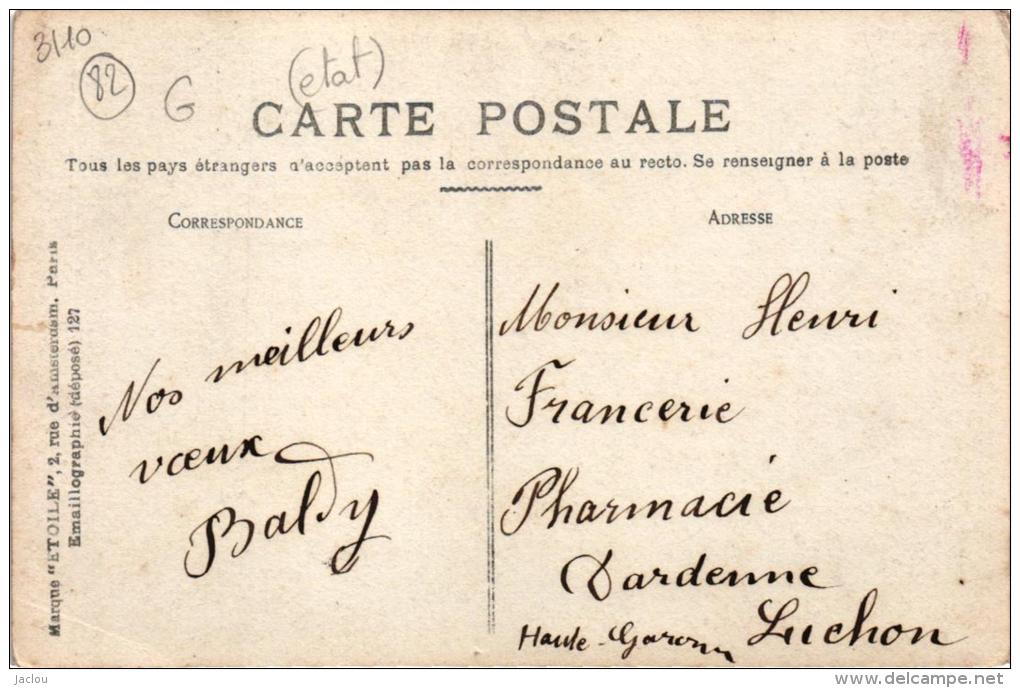 3/10
82
G
(etat)
CARTE POSTALE
Tous les pays étrangers n'acceptent pas la correspondance au recto. Se renseigner à la poste
CORRESPONDANCE
Nos meilleurs
vœux
Baldy
ADRESSE
Monsieur Henri
Francerie
Pharmacie
Dardenne
Luchon
Haute-Garonne
Marque "ETOILE", 2, rue d'Amsterdam. Paris
Emaillographie (déposé) 127
Jaclou
www.delcampe.net